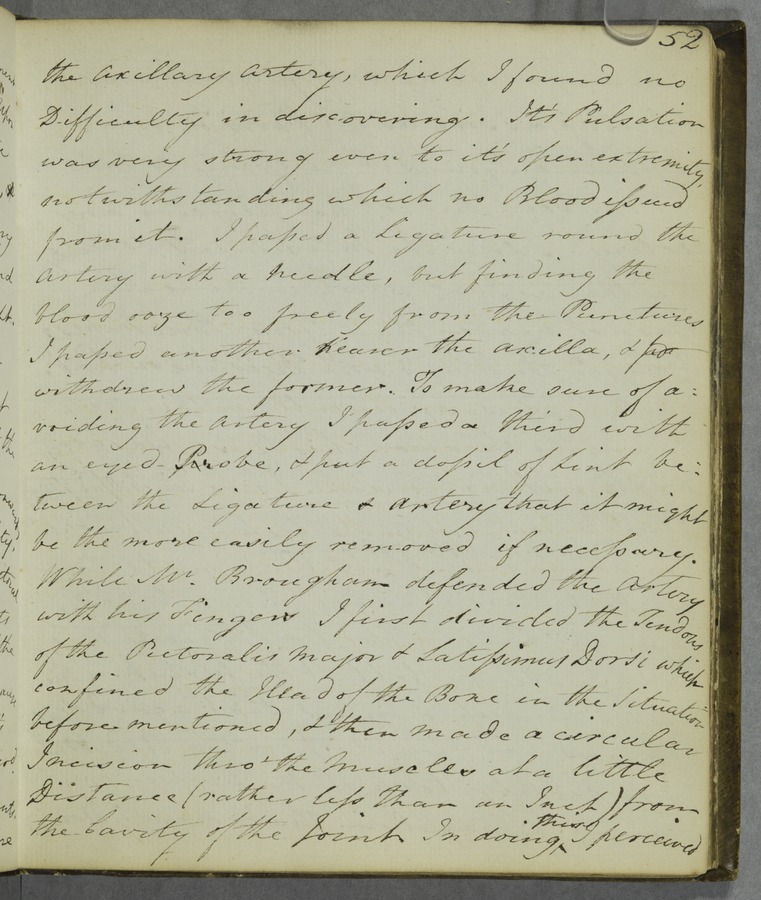 52
the axillary artery, which I found no
Difficulty in discovering. It's Pulsation
was very strong even to it's open extremity,
notwithstanding which no Blood issued
from it. I passed a Ligature round the
artery with a needle, but finding the
blood ooze too freely from the Punctures
I passed another nearer the axilla, &
withdrew the former. To make sure of a=
voiding the artery I passed a third with
an eyed-Probe, & put a dossil of Lint be=
tween the Ligature & artery that it might
be the more easily removed if necessary.
While Mr. Brougham defended the artery
with his Fingers I first divided the Tendons
of the Pectoralis major & Latissimus Dorsi which
confined the Head of the Bone in the Situation
before mentioned, & then made a circular
Incision thro' the muscles at a little
Distance (rather less than an Inch) from
the Cavity of the Joint In doing this I perceived